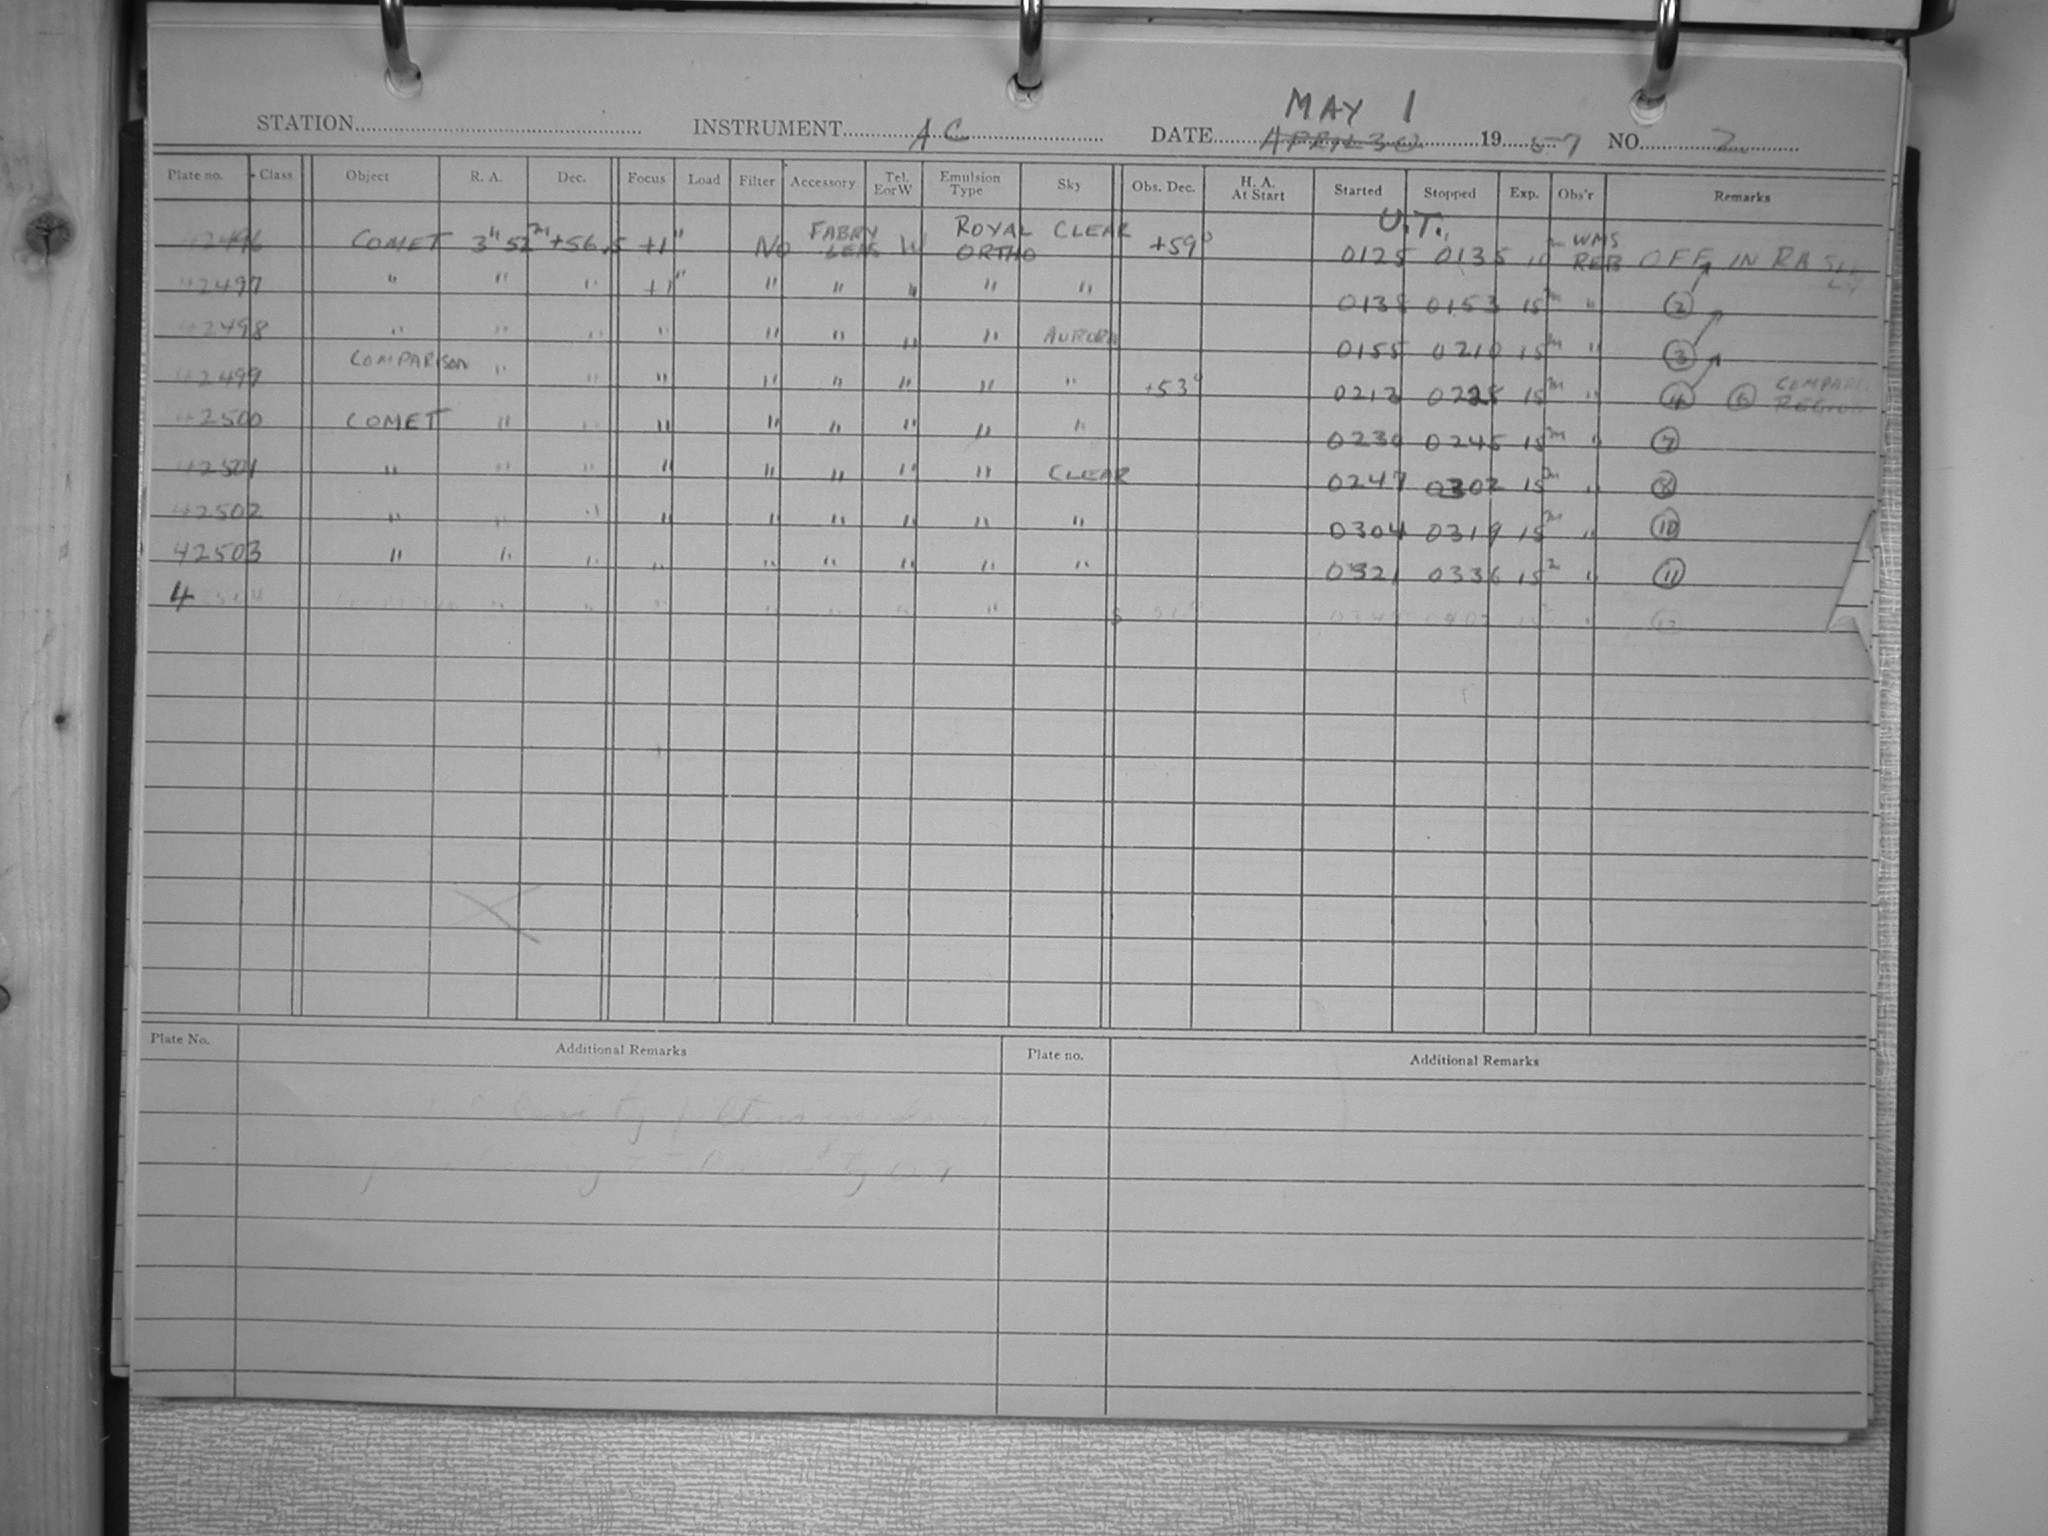 MAY 1
STATION INSTRUMENT AC DATE APRIL 30 1957 NO. 2
Plate no. Class Object R. A. Dec. Focus Load Filter Accessory Tel. E or W Emulsion Type Sky Obs. Dec. H. A. At Start Started Stopped Exp. Obs'r Remarks
U.T.
42496 COMET 3h 52m +56.5 +1" No FABRY LENS W ROYAL ORTHO CLEAR +59° 0125 0135 10m WMS REB OFF IN RA
42497 " " " +1" " " " " " 0138 0153 15m " ②
42498 " " " " " " " " AURORA 0155 0210 15m " ③
42499 COMPARISON " " " " " " " " +53° 0213 0228 15m " ④ ⑥ COMPARI REGION
42500 COMET " " " " " " " " 0230 0245 15m " ⑦
42501 " " " " " " " " CLEAR 0247 0302 15m " ⑧
42502 " " " " " " " " " 0304 0319 15m " ⑩
42503 " " " " " " " " " 0321 0336 15m " ⑪
4 " " " " " " "
Plate No. Additional Remarks Plate no. Additional Remarks
filters